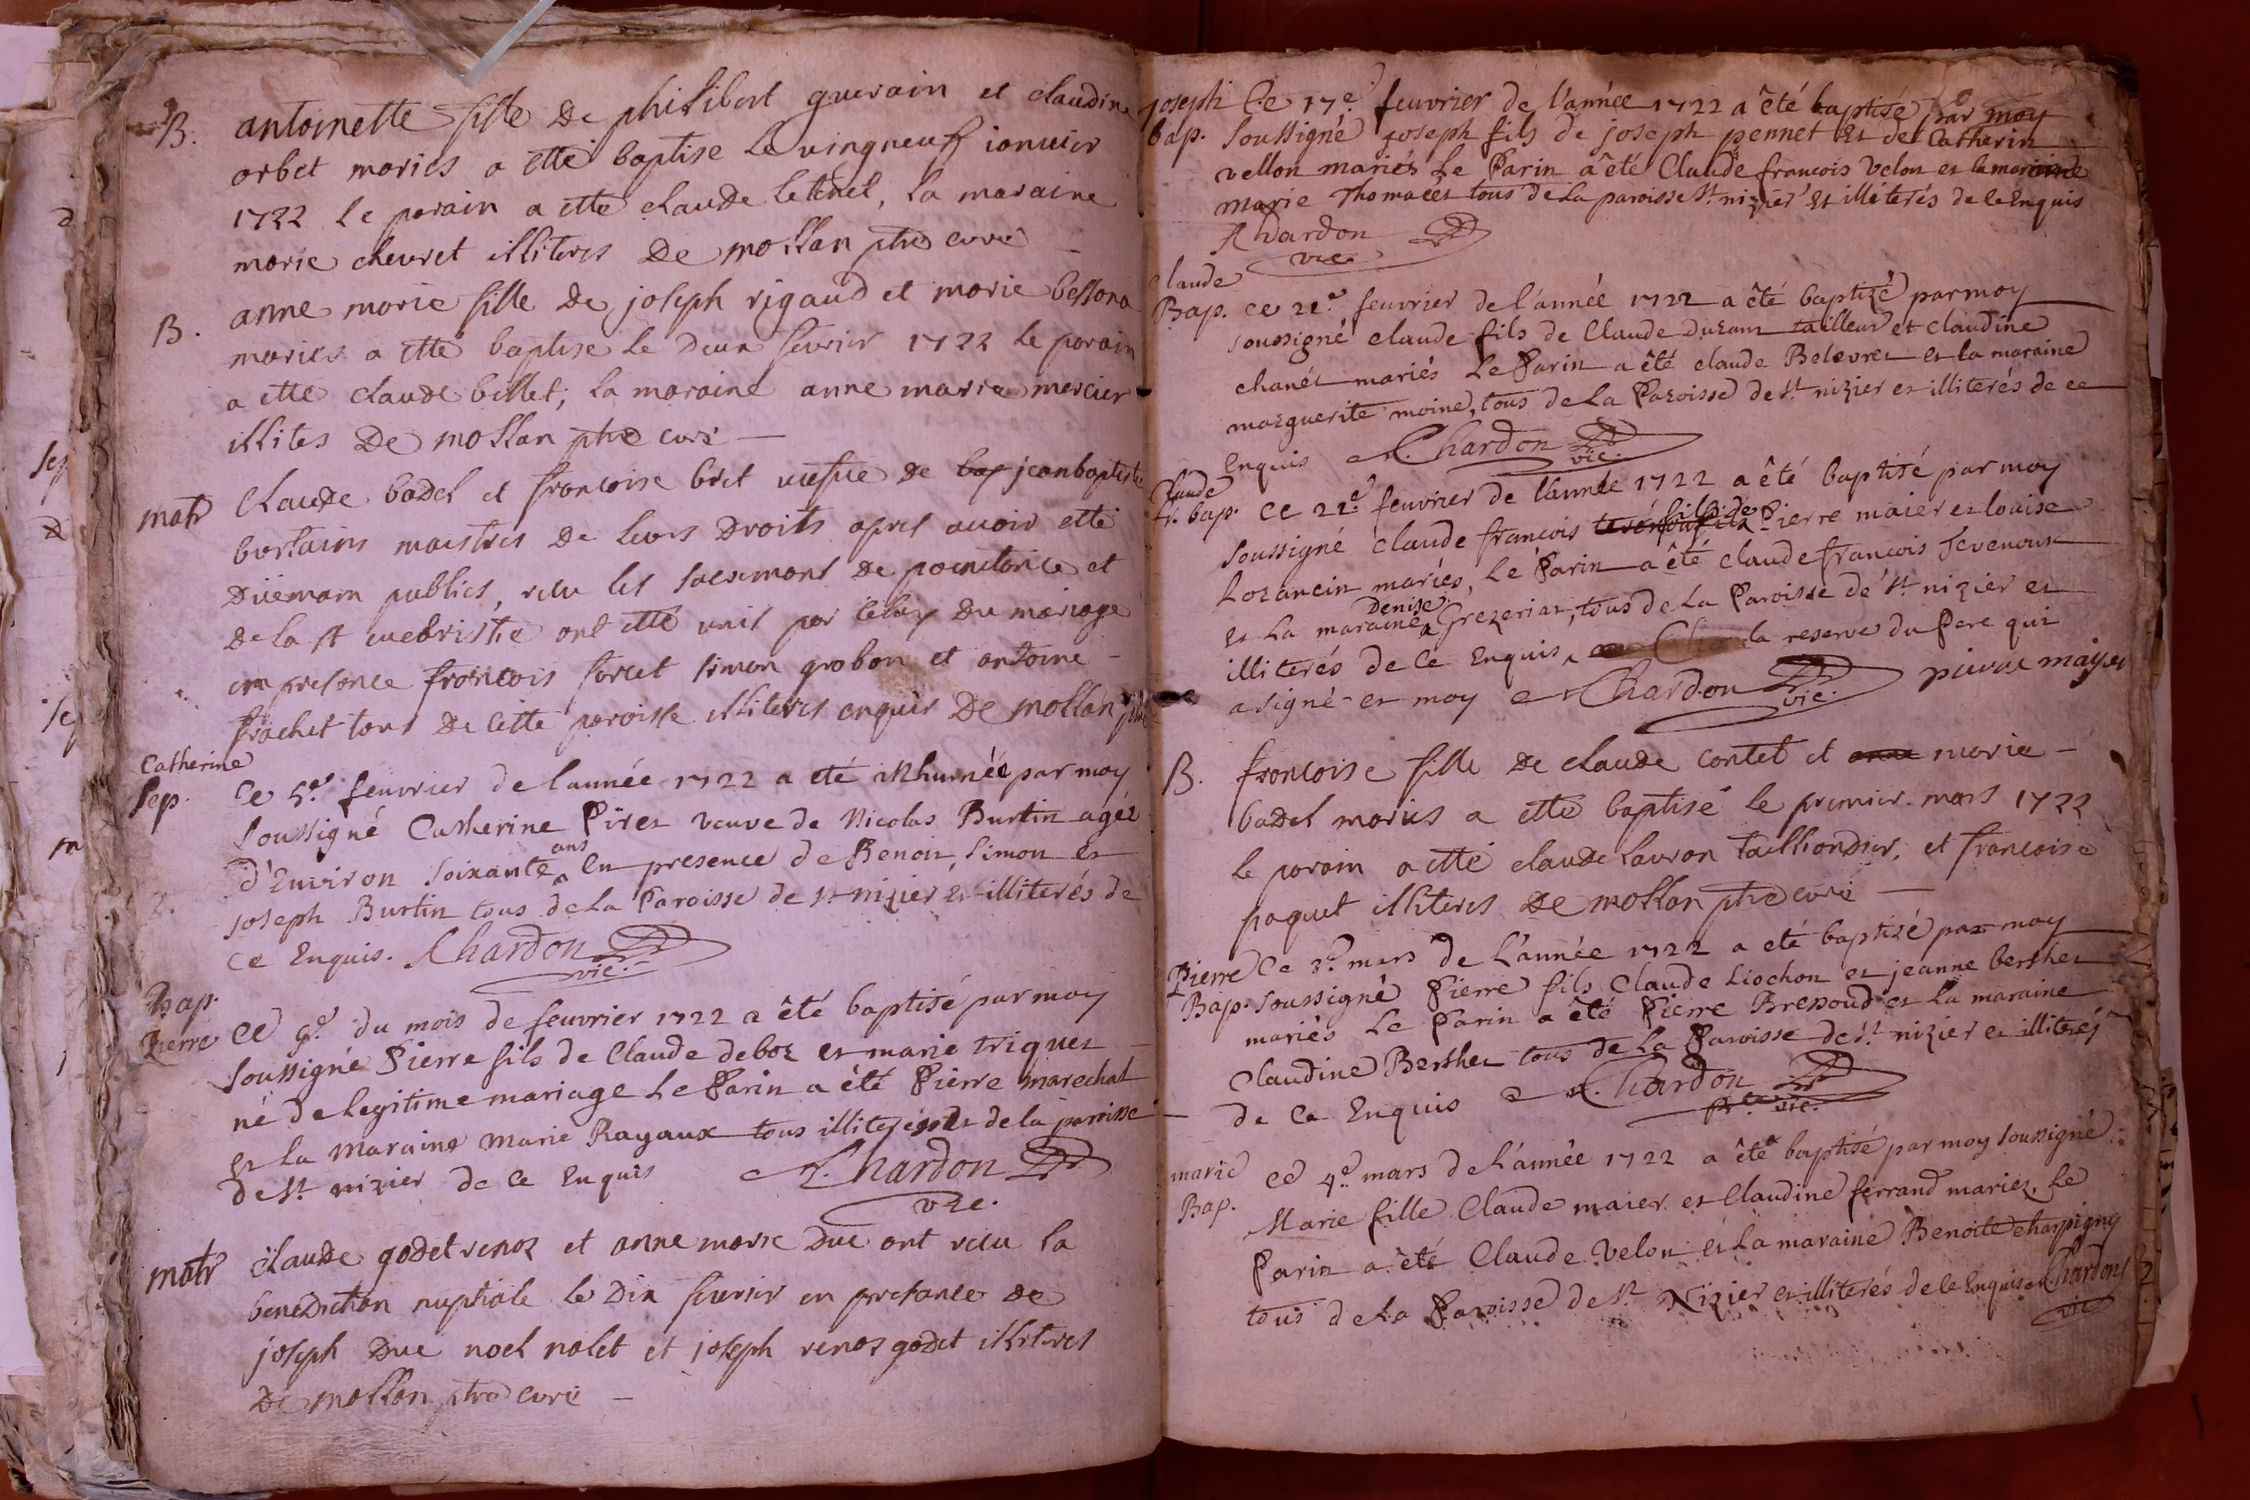 B. antoinette fille De philibert guerain et claudine
orbet mariés a etté baptise Le vingneuf ianvier
1722 le parain a etté claude letenel, la maraine
marie chevret illiteres De mollan ptre curé
B. anne marie fille De joseph rigaud et marie bessona
mariés a etté baptise Le Deux fevrier 1722 le parain
a etté claude billet, la maraine anne marie mercier
illites De mollan ptre curé
matr Claude badel et francoise bret vefve de bap jeanbaptiste
burtains maistres De leurs Droits apres avoir etté
Düemam publies, receu les sacremans De poenitance et
De la st uchristie ont etté unis par celuy Du mariage
em presance francois forest simon grobon et antoine
frachet tous De cette paroisse illiteres enquis De mollan ptre
Catherine
Sep. Ce 5.e feuvrier de lannée 1722 a eté inhumée par moy
soussigné Catherine Pirez veuve de Nicolas Burtin agée
d'Environ soixante ans En presence de Benoit, simon et
joseph Burtin tous de la Paroisse de st nizier et illiterés de
ce Enquis. Chardon
vic.
Bap.
Pierre Ce 9.e du mois de feuvrier 1722 a êté baptisé par moy
soussigné Pierre fils de Claude deboz et marie triquet
né de legitime mariage Le Parin a été Pierre marechal
et la maraine marie Rayaux tous illiterés et de la paroisse
de St nizier de ce Enquis Chardon
vic.
matr claude godet renoz et anne marie Duc ont receu la
benediction nuptiale le Dix fevrier en presance De
joseph Duc noel nolet et joseph renos godet illiteres
De mollan ptre curé
joseph Ce 17.e feuvrier de l'année 1722 a êté baptisé par moy
bap. soussigné joseph fils de joseph pennet et de Catherin
vellon mariés Le Parin a êté Claude francois velon et la maraine
marie Thomacet tous de la paroisse St nizier et illiterés de ce Enquis
Chardon
vic.
Claude
Bap. ce 21.e feuvrier de l'année 1722 a êté baptizé par moy
soussigné claude fils de Claude Durant tailleur et claudine
chanét mariés Le Parin a êté claude Belevret et la maraine
marguerite moine, tous de la Paroisse de St nizier et illiterés de ce
Enquis Chardon
vic.
Claude
fr. bap. ce 22.e feuvrier de l'année 1722 a êté baptisé par moy
soussigné claude francois fils de Pierre maier et louise
Lozancin mariés, Le Parin a êté claude francois Tevenoux
et La maraine Denise Prezeriat, tous de la Paroisse de st nizier et
illiterés de ce Enquis, a la reserve du Pere qui
a signé et moy Chardon vic. pierre mayer
B. francoise fille De claude contet et anne marie
badel mariés a etté baptisé le premier mars 1722
le parain a etté claude lauron taillondier, et francoise
paquet illiteres De mollan ptre curé
Pierre Ce 3.e mars de l'année 1722 a eté baptizé par moy
Bap. soussigné Pierre fils Claude Liochon et jeanne berthet
mariés Le Parin a êté Pierre Bressoud et La maraine
Claudine Berthet tous de la Paroisse de St nizier et illiterés
de Ce Enquis Chardon
ptre vic.
marie ce 4.e mars de l'année 1722 a êté baptisé par moy soussigné
Bap. Marie fille Claude maier et Claudine ferrand mariez, Le
Parin a êté Claude Velon et la maraine Benoite charpigny
tous de la Paroisse de St Nizier et illiterés de ce Enquis Chardon
vic